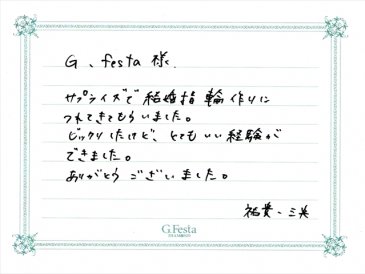 G.festa 様.
サプライズで結婚指輪作りに
つれてきてもらいました。
ビックリしたけど、とてもいい経験が
できました。
ありがとうございました。
祐貴・三美
G.Festa